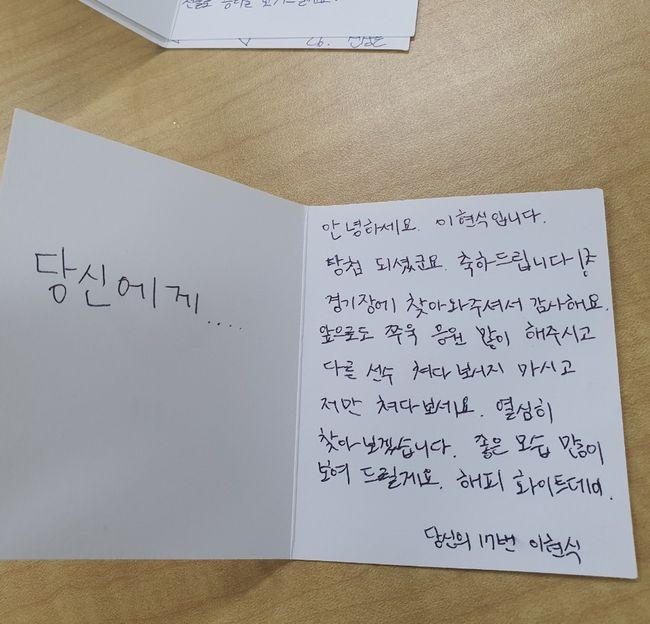 선물로 응원을 보기드릴게요.
26.
당신에게....
안녕하세요. 이현식입니다.
당첨 되셨군요. 축하드립니다!
경기장에 찾아와주셔서 감사해요.
앞으로도 쭈욱 응원 많이 해주시고
다른 선수 쳐다보시지 마시고
저만 쳐다보세요. 열심히
찾아보겠습니다. 좋은 모습 많이
보여 드릴게요. 해피 화이트데이.
당신의 17번 이현식